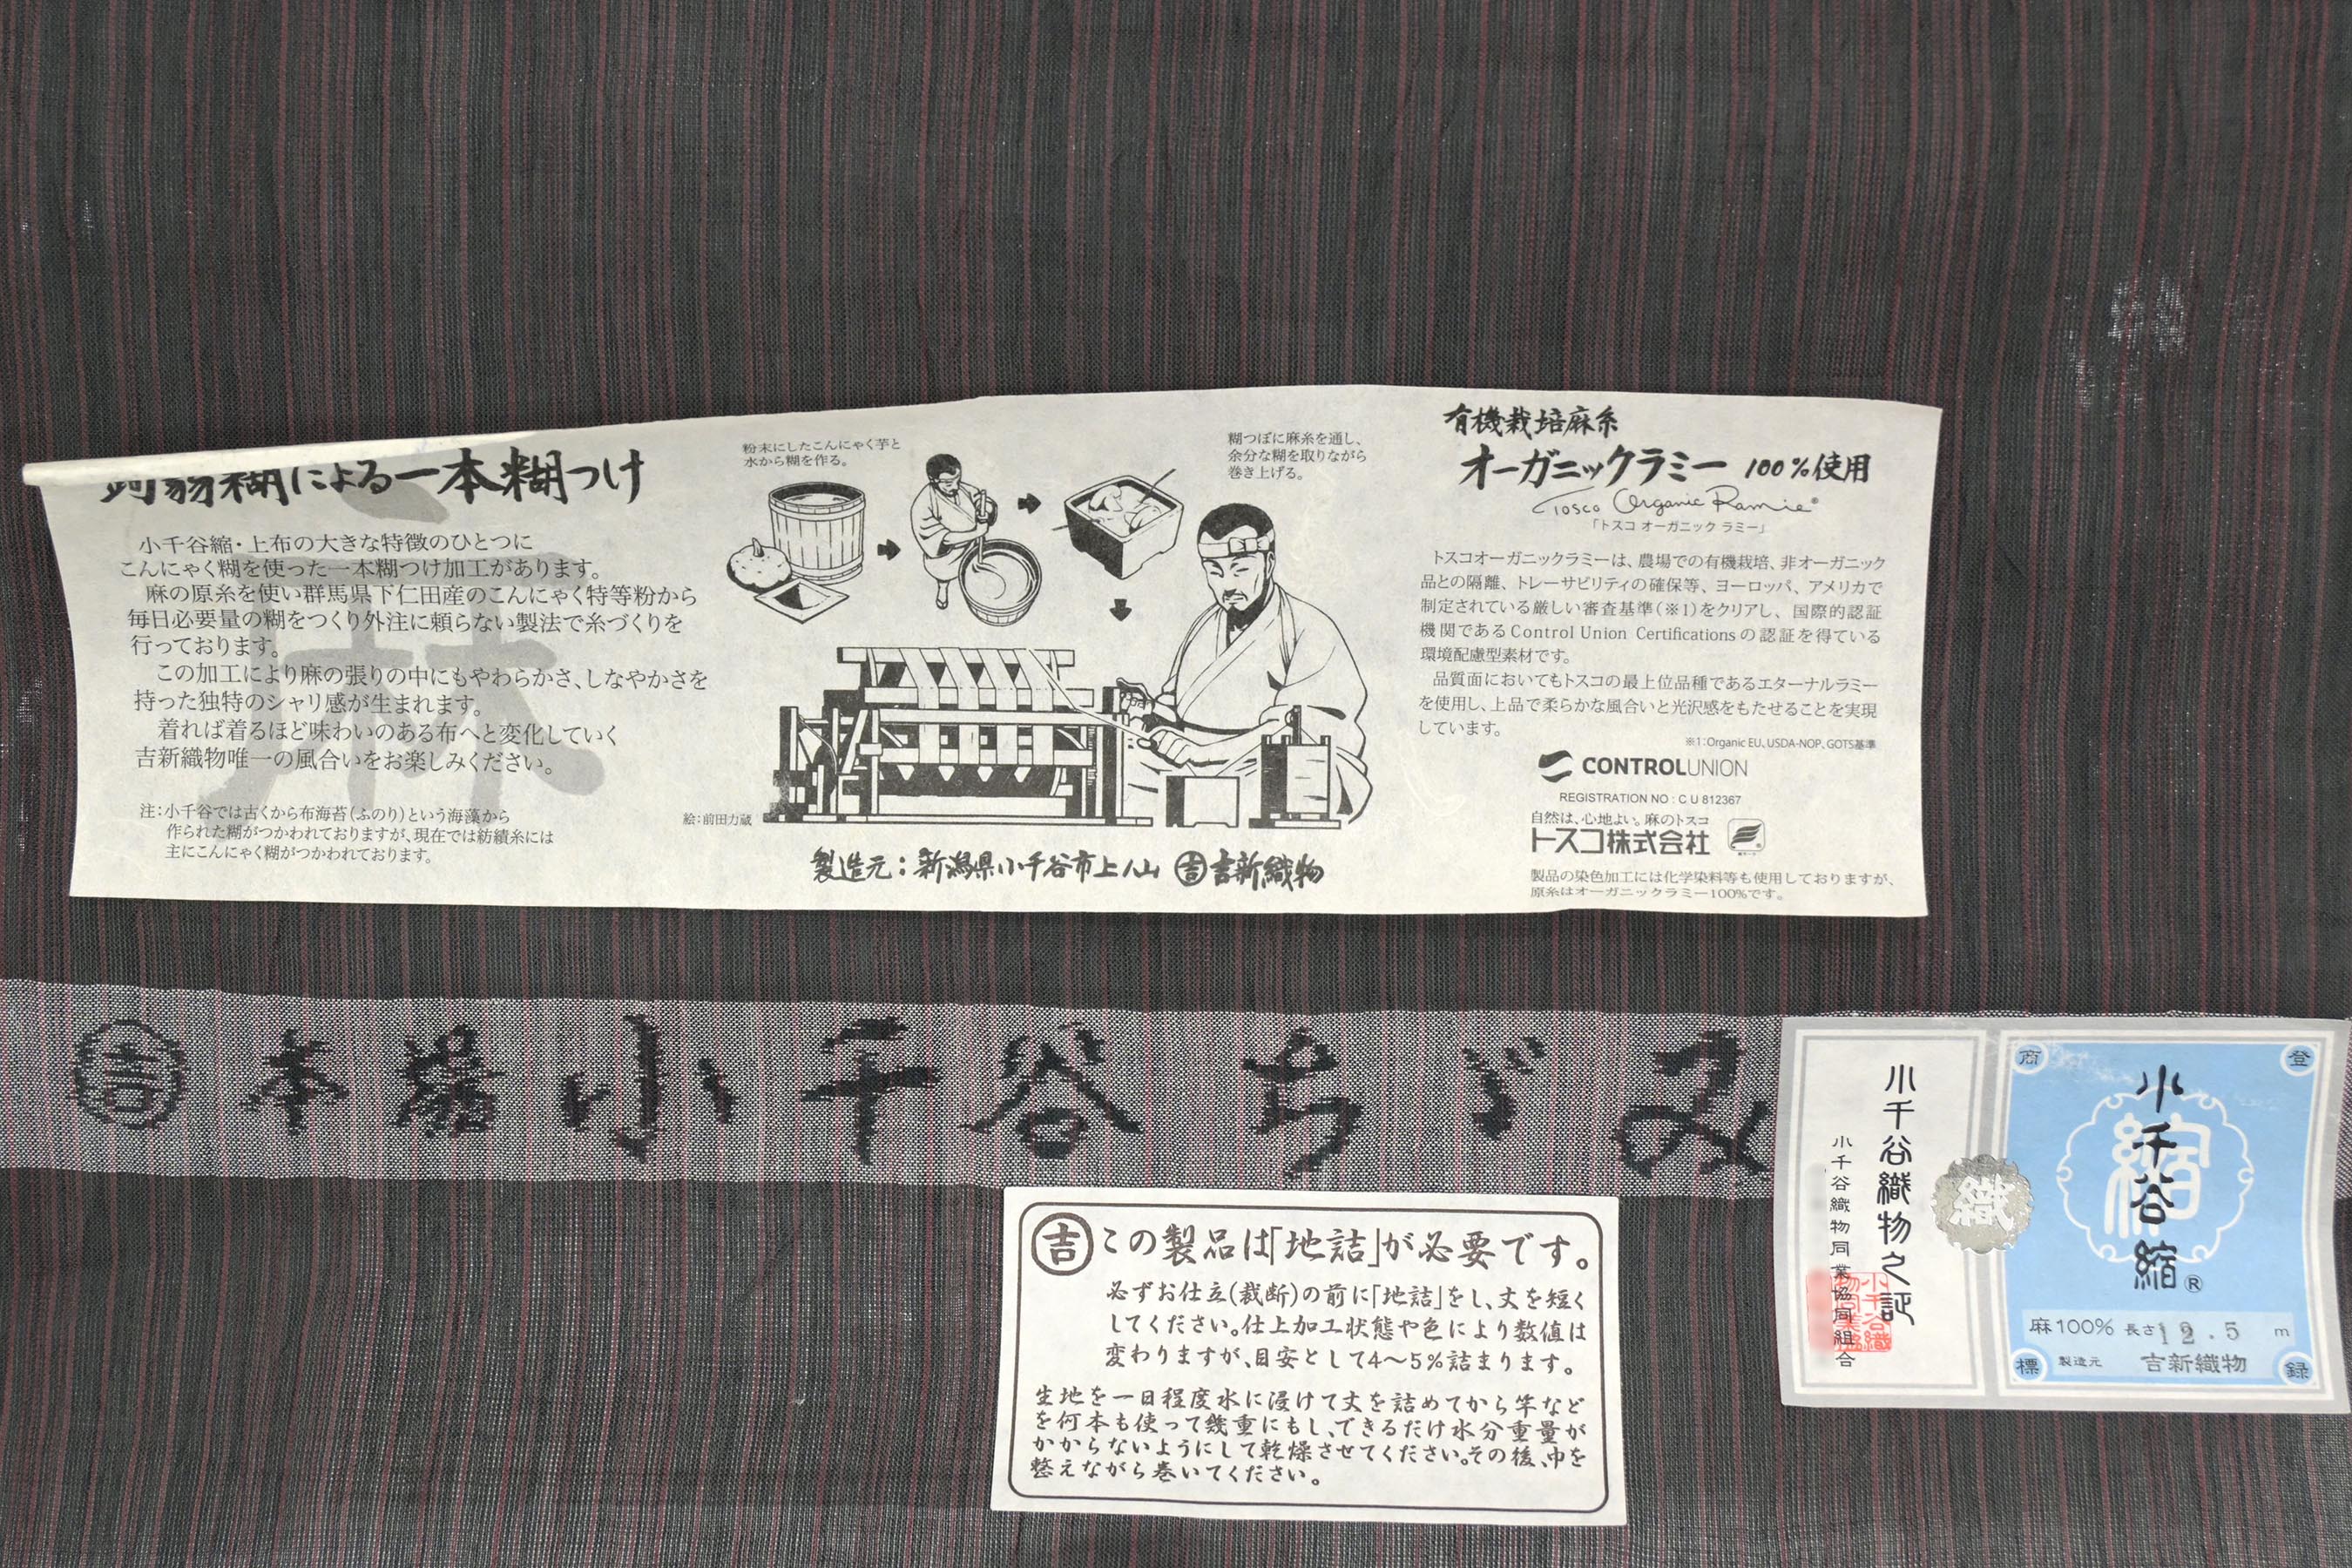 蒟蒻糊による一本糊つけ
小千谷縮・上布の大きな特徴のひとつに
こんにゃく糊を使った一本糊つけ加工があります。
麻の原糸を使い群馬県下仁田産のこんにゃく特等粉から
毎日必要量の糊をつくり外注に頼らない製法で糸づくりを
行っております。
この加工により麻の張りの中にもやわらかさ、しなやかさを
持った独特のシャリ感が生まれます。
着れば着るほど味わいのある布へと変化していく
吉新織物唯一の風合いをお楽しみください。
麻
注：小千谷では古くから布海苔(ふのり)という海藻から
作られた糊がつかわれておりますが、現在では紡績糸には
主にこんにゃく糊がつかわれております。
粉末にしたこんにゃく芋と
水から糊を作る。
糊つぼに麻糸を通し、
余分な糊を取りながら
巻き上げる。
絵：前田力蔵
製造元：新潟県小千谷市上ノ山 吉 吉新織物
有機栽培麻糸
オーガニックラミー 100%使用
Tosco Organic Ramie®
「トスコ オーガニック ラミー」
トスコオーガニックラミーは、農場での有機栽培、非オーガニック
品との隔離、トレーサビリティの確保等、ヨーロッパ、アメリカで
制定されている厳しい審査基準(※1)をクリアし、国際的認証
機関であるControl Union Certificationsの認証を得ている
環境配慮型素材です。
品質面においてもトスコの最上位品種であるエターナルラミー
を使用し、上品で柔らかな風合いと光沢感をもたせることを実現
しています。
※1:Organic EU、USDA-NOP、GOTS基準
CONTROLUNION
REGISTRATION NO : C U 812367
自然は、心地よい。麻のトスコ
トスコ株式会社
製品の染色加工には化学染料等も使用しておりますが、
原糸はオーガニックラミー100%です。
吉 本場小千谷ちぢみ
吉 この製品は「地詰」が必要です。
必ずお仕立(裁断)の前に「地詰」をし、丈を短く
してください。仕上加工状態や色により数値は
変わりますが、目安として4〜5%詰まります。
生地を一日程度水に浸けて丈を詰めてから竿など
を何本も使って幾重にもし、できるだけ水分重量が
かからないようにして乾燥させてください。その後、巾を
整えながら巻いてください。
小千谷織物之証
小千谷織物同業協同組合
織
登録商標
縮
小千谷縮®
麻100% 長さ 12.5 m
製造元 吉新織物